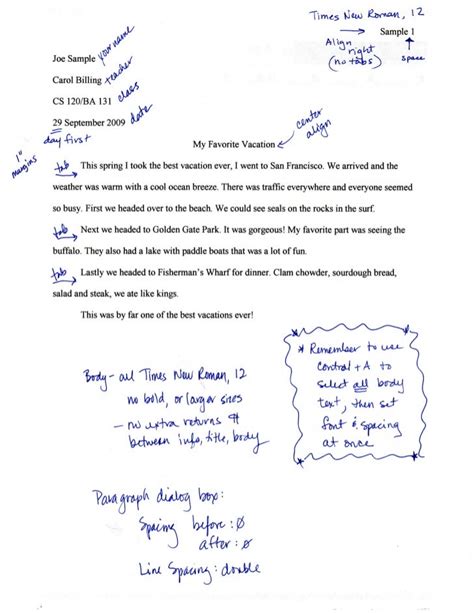 Times New Roman, 12
Sample 1
Align
right
(no tabs)
space
Joe Sample your name
Carol Billing teacher
CS 120/BA 131 class
29 September 2009 date
day first
1" margins
My Favorite Vacation
center
align
tab This spring I took the best vacation ever, I went to San Francisco. We arrived and the
weather was warm with a cool ocean breeze. There was traffic everywhere and everyone seemed
so busy. First we headed over to the beach. We could see seals on the rocks in the surf.
tab Next we headed to Golden Gate Park. It was gorgeous! My favorite part was seeing the
buffalo. They also had a lake with paddle boats that was a lot of fun.
tab Lastly we headed to Fisherman's Wharf for dinner. Clam chowder, sourdough bread,
salad and steak, we ate like kings.
This was by far one of the best vacations ever!
* Remember to use
Control + A to
select all body
text, then set
font & spacing
at once
Body - all Times New Roman, 12
no bold, or larger sizes
- no extra returns ¶
between info, title, body
Paragraph dialog box:
Spacing before: Ø
after: Ø
Line Spacing: double